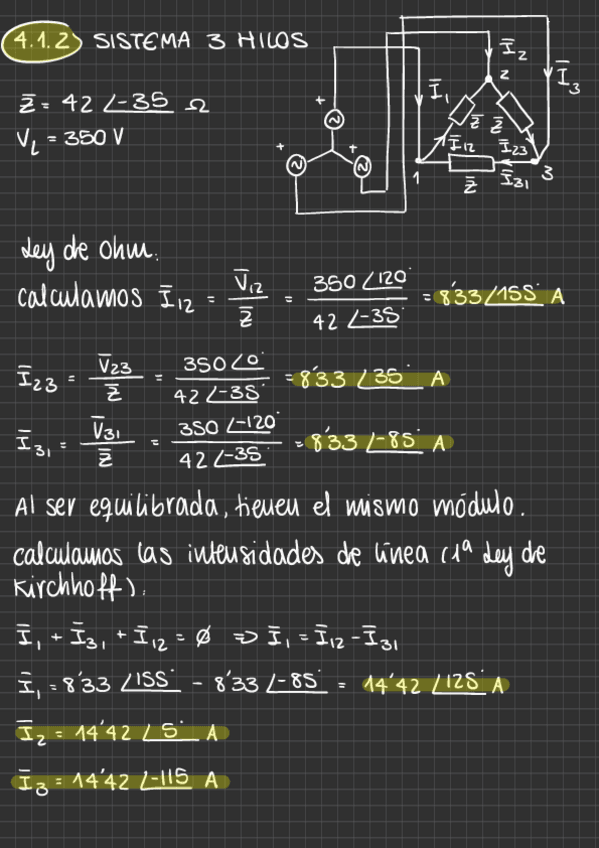 4.1.2 SISTEMA 3 HILOS
Z̄ = 42 ∠-35 Ω
V_L = 350 V
+
+
+
Ī₁
Ī₂
Ī₃
2
Z̄
Z̄
Ī₁₂
Ī₂₃
1
Z̄
Ī₃₁
3
Ley de Ohm.
calculamos Ī₁₂ = V̄₁₂ / Z̄ = 350 ∠120° / 42 ∠-35° = 8'33 ∠155° A
Ī₂₃ = V̄₂₃ / Z̄ = 350 ∠0° / 42 ∠-35° = 8'33 ∠35° A
Ī₃₁ = V̄₃₁ / Z̄ = 350 ∠-120° / 42 ∠-35° = 8'33 ∠-85° A
Al ser equilibrada, tienen el mismo módulo.
calculamos las intensidades de línea (1ª Ley de
Kirchhoff).
Ī₁ + Ī₃₁ + Ī₁₂ = ∅ ⇒ Ī₁ = Ī₁₂ - Ī₃₁
Ī₁ = 8'33 ∠155° - 8'33 ∠-85° = 14'42 ∠125° A
Ī₂ = 14'42 ∠5° A
Ī₃ = 14'42 ∠-115 A